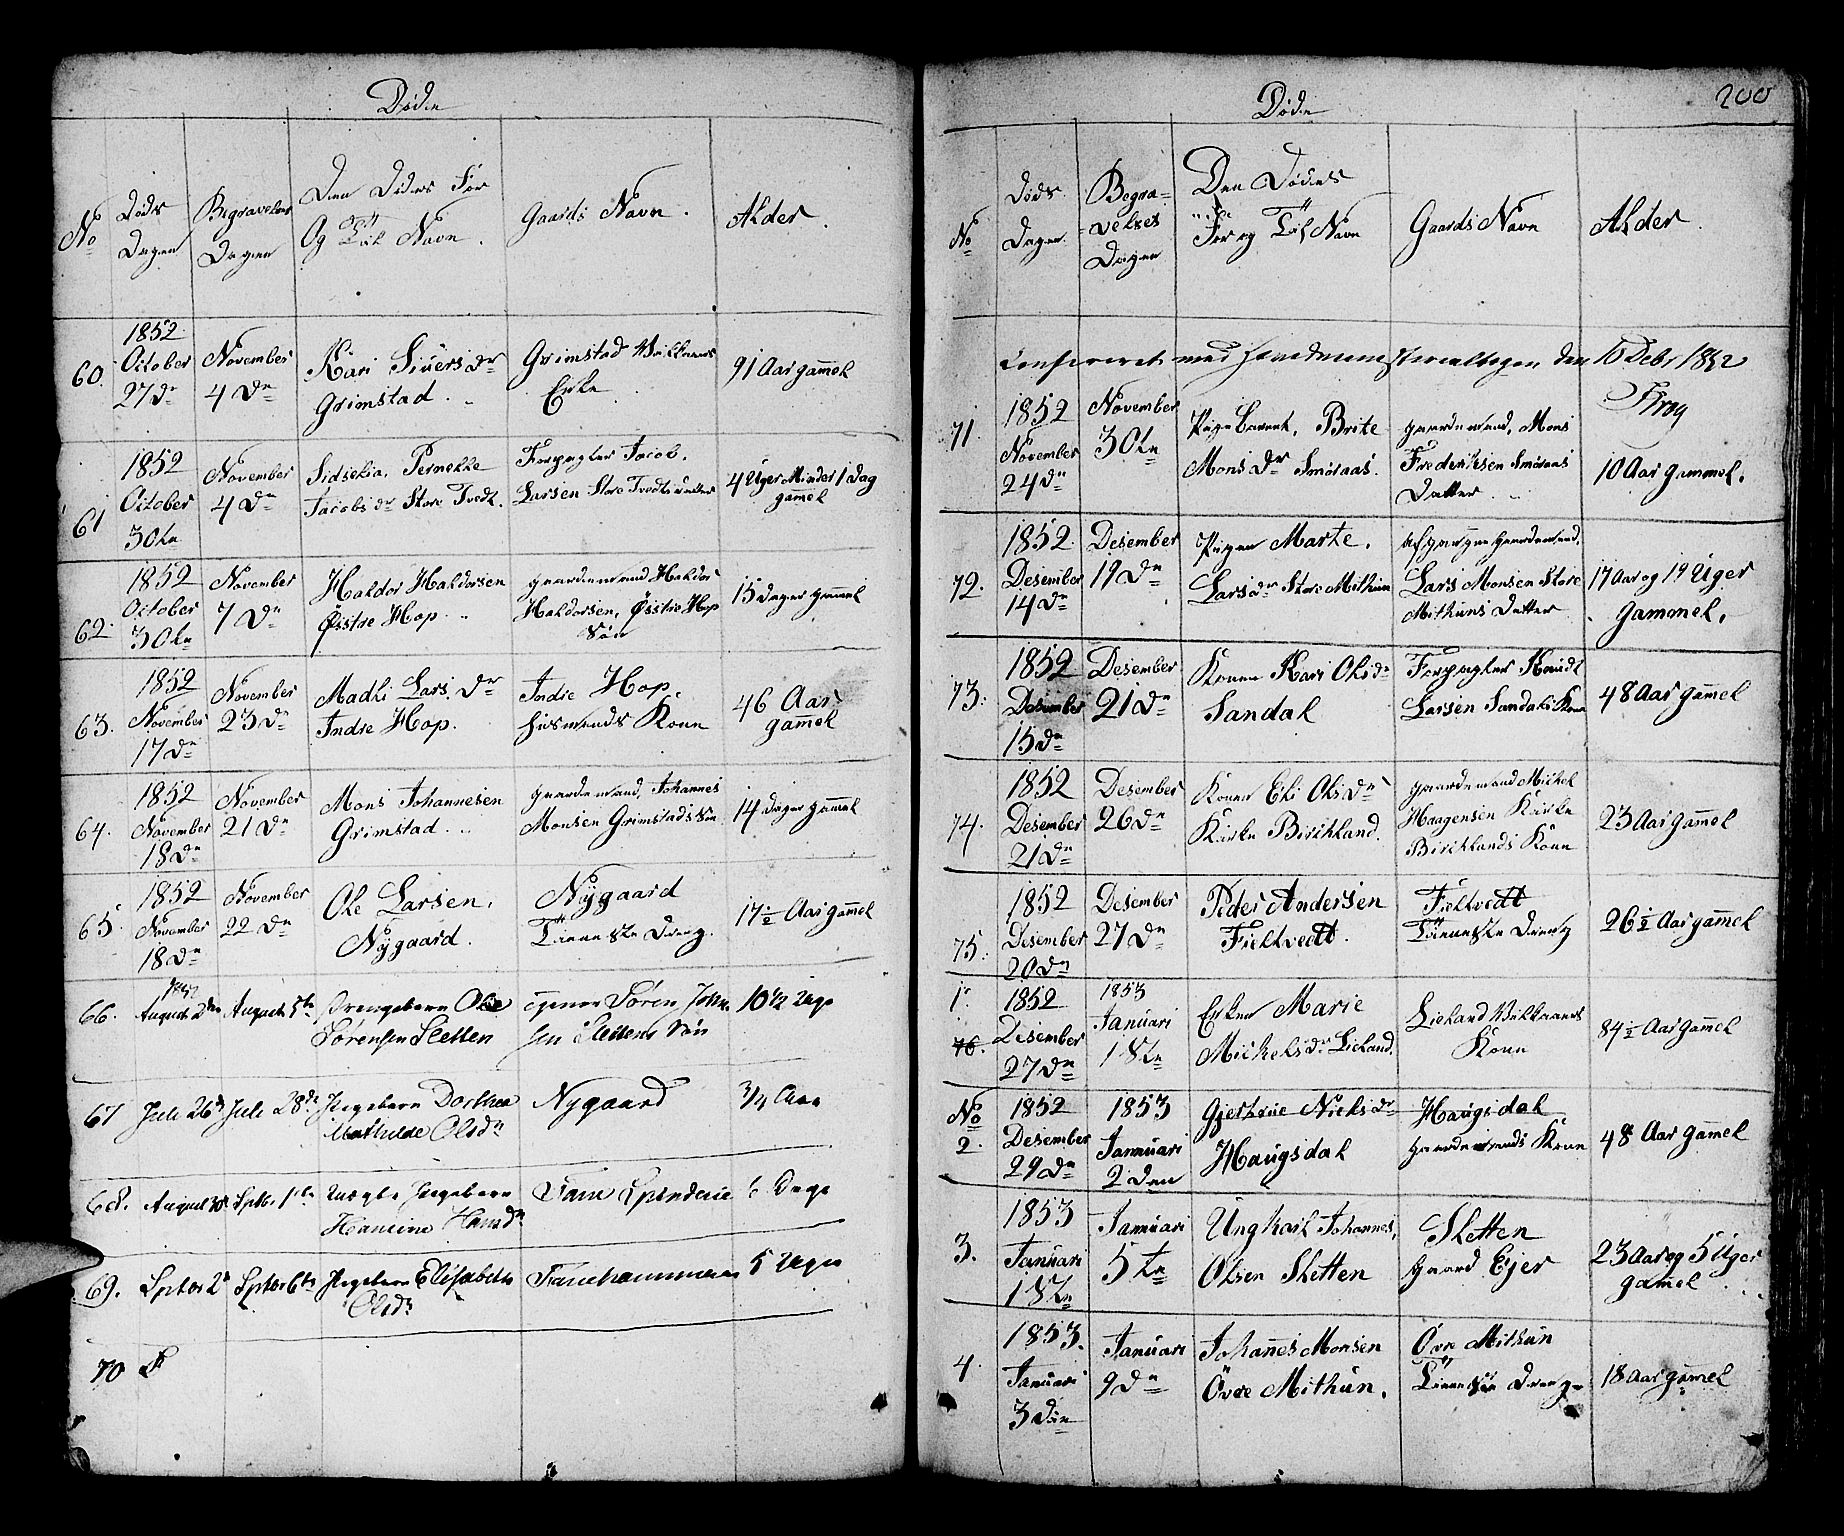 Døde
No
Døds
Dagen
Begravelses
Dagen
Den Dødes For
Og Til Navn.
Gaards Navn.
Alder.
60.
1852
October
27de
November
4de
Kari Siversdr
Grimstad.
Grimstad Vilkaars
Enke
91 Aar gammel
61
1852
October
30te
November
4de
Sidselia, Pernelle
Jacobsdr Store Tvedt.
Forpagter Jacob.
Larsen Store Tvedts datter
4 Uger Minder 1 Dag
gammel
62.
1852
October
30te
November
7de
Haldor Haldorsen
Østre Hop.
gaardemand Haldor
Haldorsen, Østre Hop
Søn
15 Dager gammel
63.
1852
November
17de
November
23de
Madli Larsdr
Indre Hop.
Indre Hop.
husmands Kone
46 Aar
gammel
64.
1852
November
18de
November
21de
Mons Johannesen
Grimstad.
gaardemand, Johannes
Monsen Grimstads Søn
14 Dager gammel
65.
1852
November
18de
November
22de
Ole Larsen.
Nygaard.
Nygaard
Tieneste Dreng.
17½ Aar gammel
66.
1852
August 2den
August 5te
Drengebarn Ole
Sørensen Sletten
Søren John
sen Slettens Søn
10½ Uge
67
Juli 26de
Juli 28de
Pigebarn Dorthea
Mathilde Olsdr
Nygaard
¾ Aar
68.
August 30
Septbr 1ste
Pigebarn
Hansine Hansdr
Fane Spinderie
6 Dage
69.
Septbr 2
Septbr 6te
Pigebarn Elisabeth
Olsdr
Fanehammeren
5 Uger
70
Døde
200
No
Døds
Dagen.
Begra-
velses
Dagen
Den Dødes
For og Til Navn
Gaards Navn
Alder.
Confereret med Hovedministerialbogen den 10 Debr 1852
Krog
71.
1852
November
24de
November
30te
Pigebarnet, Brite
Monsdr Smøraas.
gaardemand, Mons
Frederiksen Smøraas
Datter
10 Aar gammel.
72.
1852
Desember
14de
Desember
19de
Pigen Marte.
Larsdr Store Mithun
afgangne gaardemand,
Lars Monsen Store
Mithuns Datter
17 Aar og 19 Uger
gammel.
73.
1852
Desember
15de
Desember
21de
Konen Kari Olsdr
Sandal
Forpagter Knudt
Larsen Sandals Kone
48 Aar gammel
74.
1852
Desember
21de
Desember
26de
Konen Eli Olsdr
Kirke Birchland.
gaardemand Mikel
Haagensen Kirke
Birchlands Kone
23 Aar gammel
75.
1852
Desember
20de
Desember
27de
Peder Andersen
Fieltvedt.
Fieltvedt
Tieneste Dreng
26½ Aar gammel
1.
76.
1852
Desember
27de
1853
Januari
1ste
Enken Marie
Mickelsdr Lieland.
Lieland Vilkaars
Kone
84½ Aar gammel
No
2.
1852
Desember
29de
1853
Januari
2den
Gjertrue Nielsdr
Haugsdal
Haugsdal
gaardemands Kone
48 Aar gammel
3.
1853
Januari
1ste
Januari
5te
Ungkarl Johannes,
Olsen Sletten
Sletten
Gaard Ejer
23 Aar og 5 Uger
gammel
4.
1853.
Januari
3die
Januari
9de
Johannes Monsen
Övre Mithun.
Övre Mithun
Tieneste Dreng
18 Aar gammel